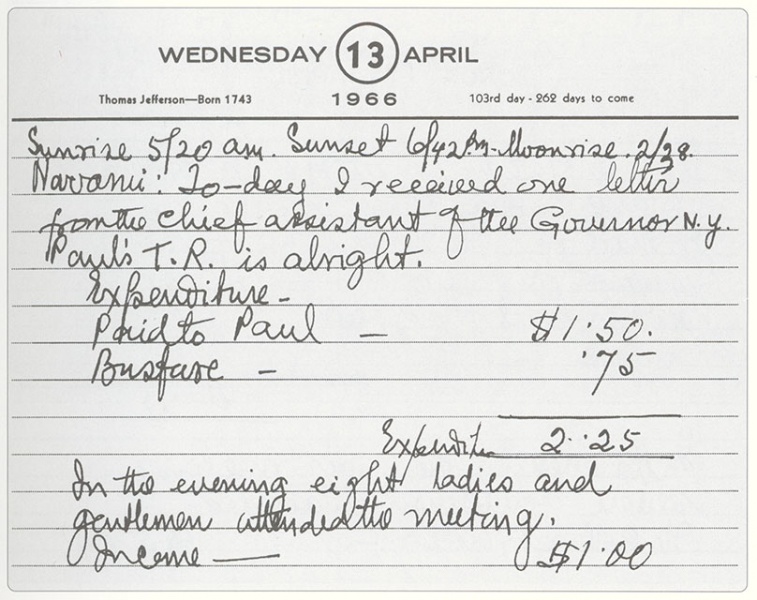 WEDNESDAY 13 APRIL
Thomas Jefferson—Born 1743 1966 103rd day - 262 days to come
Sunrise 5/20 am. Sunset 6/42 Pm - Moonrise. 2/38.
To-day I received one letter
from the chief assistant of the Governor N.Y.
Paul's T.R. is alright.
Expenditure -
Paid to Paul — $1.50.
Busfare — .75
Expenditu 2.25
In the evening eight ladies and
gentlemen attended the meeting.
Income — $1.00